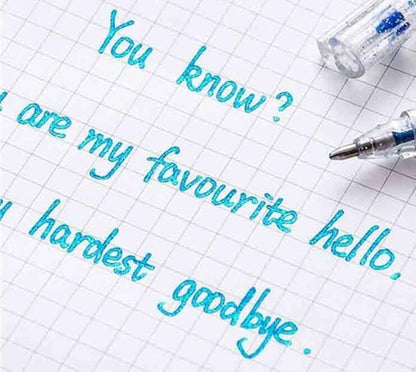 You know?
are my favourite hello.
hardest goodbye.